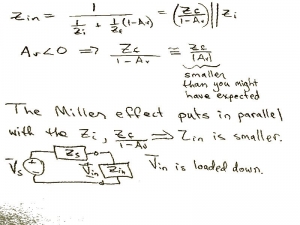 Zin = 1 / (1/Zi + 1/Zc (1-Av)) = (Zc/(1-Av)) || Zi
Av<0 ⇒ Zc/(1-Av) ≅ Zc/|Av|
smaller
than you might
have expected
The Miller effect puts in parallel
with the Zi, Zc/(1-Av) ⇒ Zin is smaller.
Vs Zs Vin Zin
Vin is loaded down.